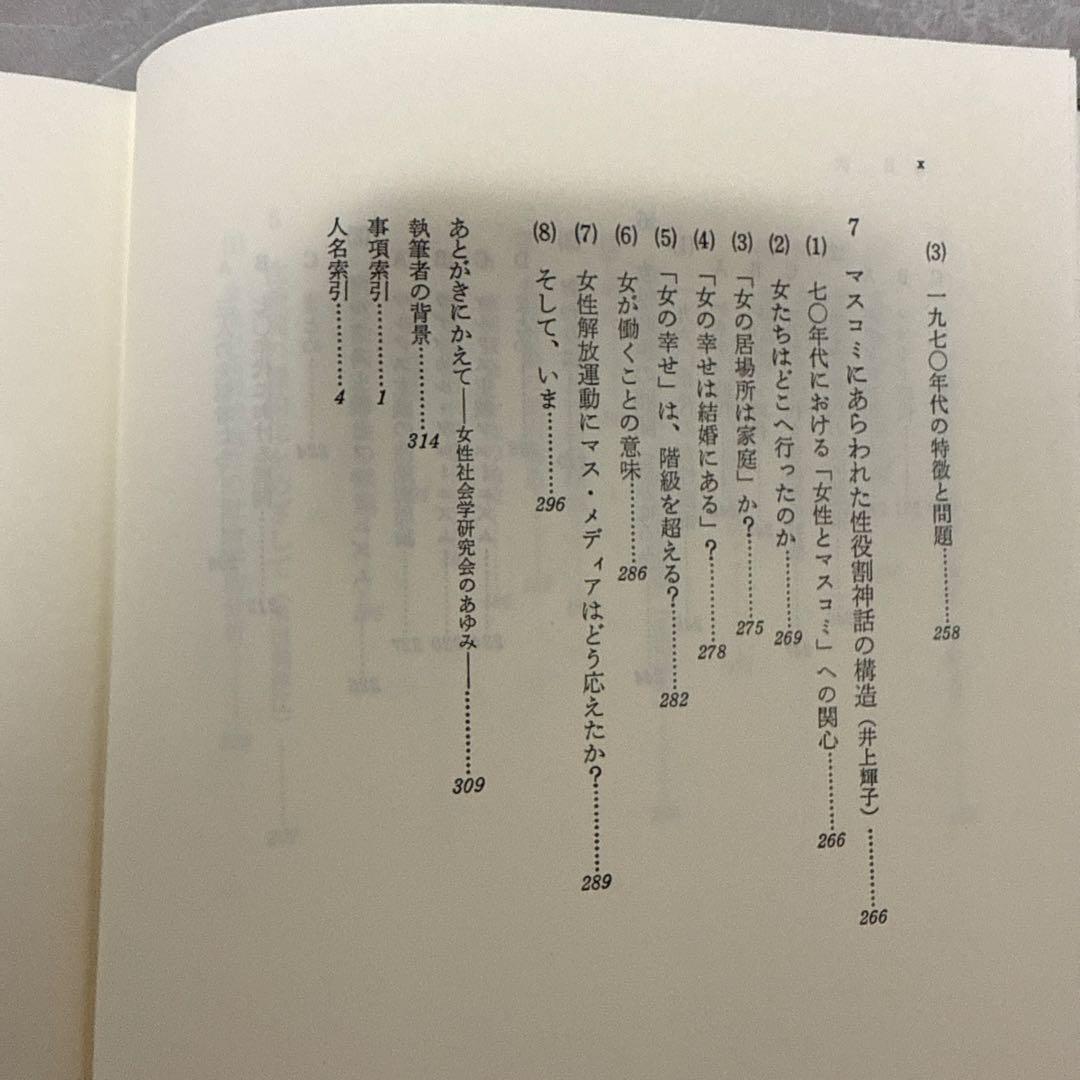 x
(3) 一九七〇年代の特徴と問題…………258
7 マスコミにあらわれた性役割神話の構造（井上輝子）…………266
(1) 七〇年代における「女性とマスコミ」への関心…………266
(2) 女たちはどこへ行ったのか…………269
(3) 「女の居場所は家庭」か？…………275
(4) 「女の幸せは結婚にある」？…………278
(5) 「女の幸せ」は、階級を超える？…………282
(6) 女が働くことの意味…………286
(7) 女性解放運動にマス・メディアはどう応えたか？…………289
(8) そして、いま…………296
あとがきにかえて――女性社会学研究会のあゆみ――…………309
執筆者の背景…………314
事項索引…………1
人名索引…………4